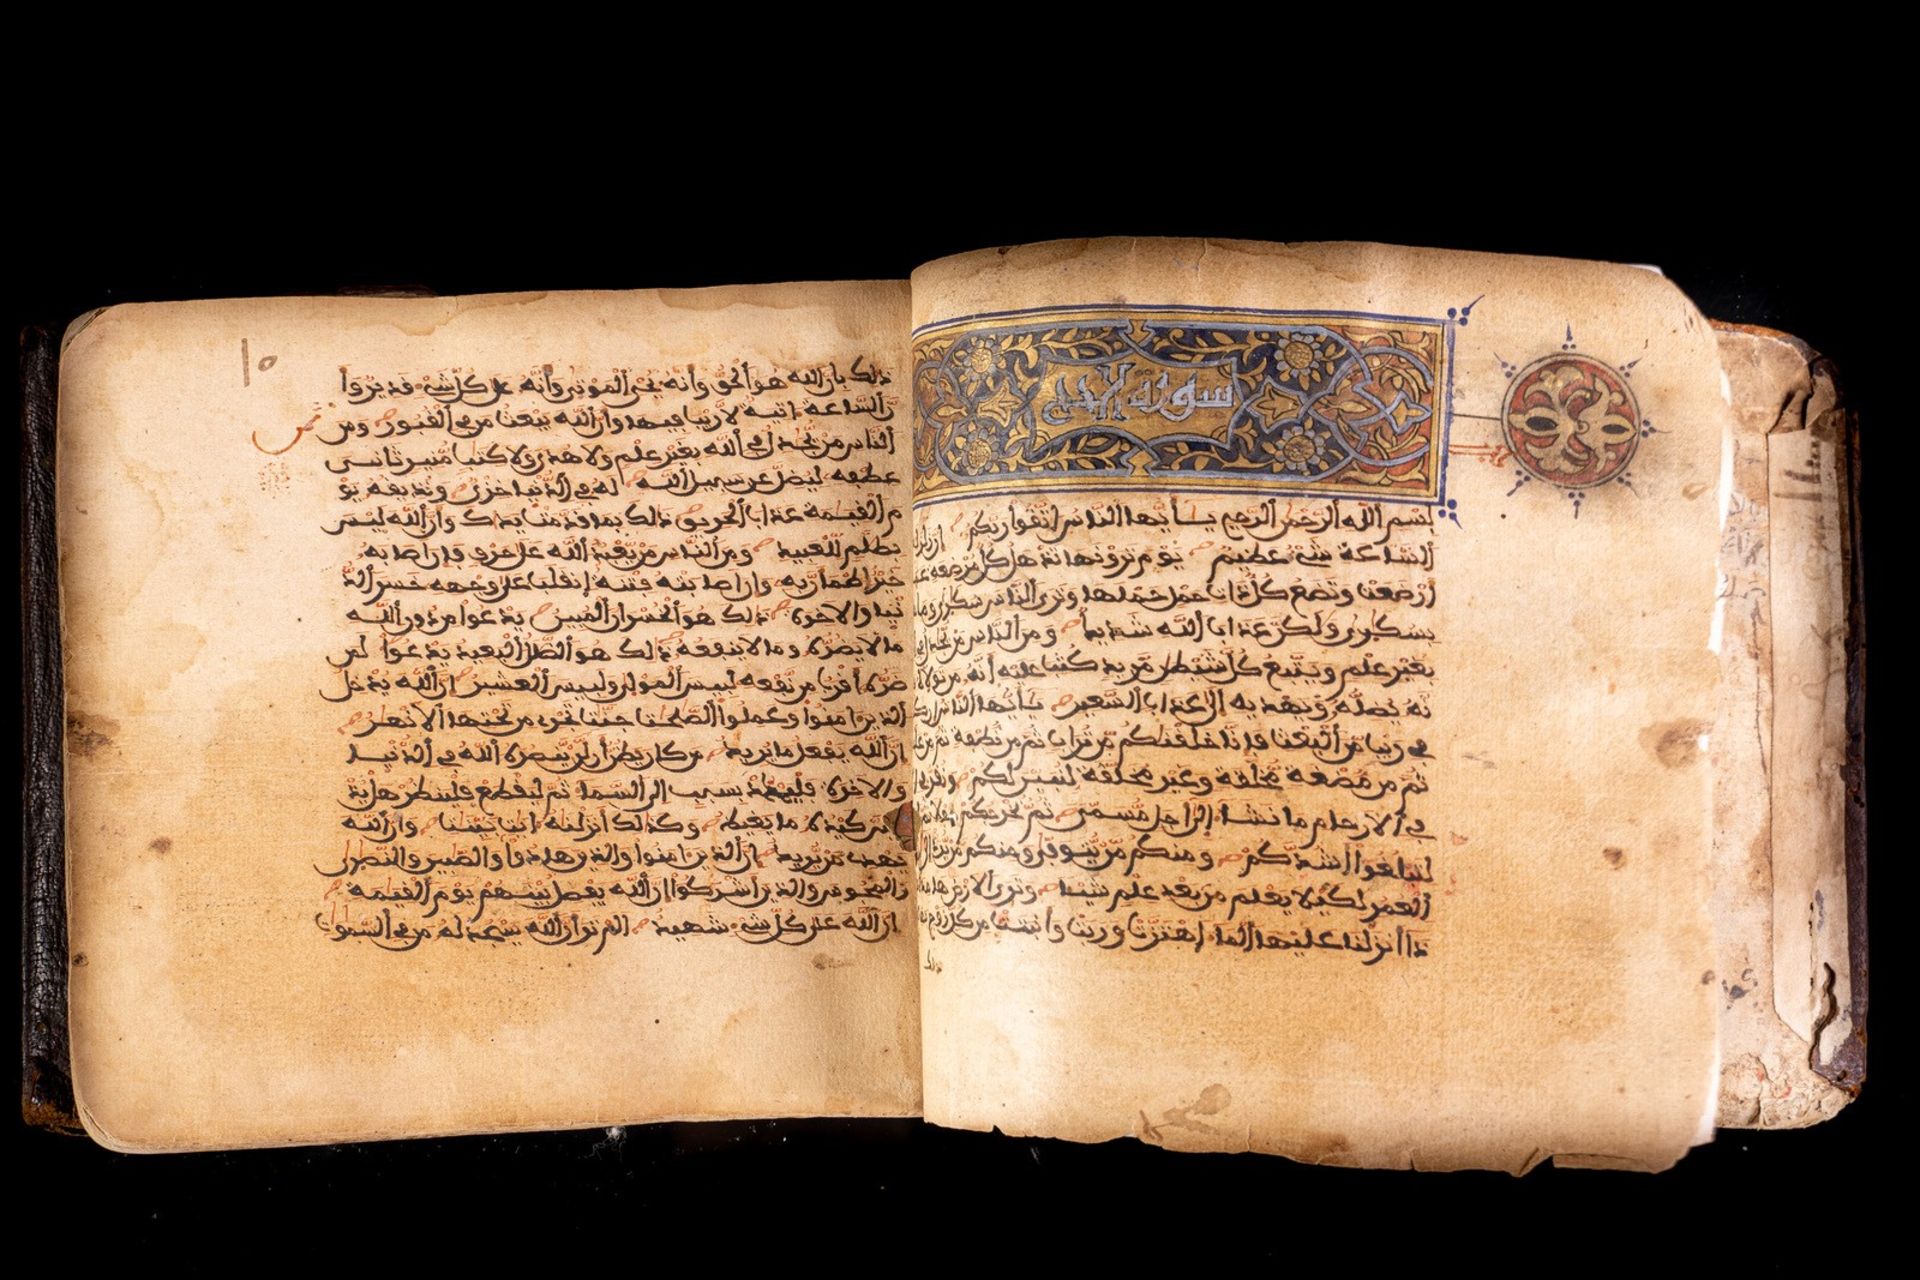 سورة الحج
بسم الله الرحمن الرحيم يأيها الناس اتقوا ربكم ان زلزلة
الساعة شىء عظيم يوم ترونها تذهل كل مرضعة
ارضعت وتضع كل ذات حمل حملها وترى الناس سكرى وما
بسكرى ولكن عذاب الله شديد ومن الناس من يجدل
بغير علم ويتبع كل شيطن مريد كتب عليه أنه من تولاه
نه يضله ويهديه إلى عذاب السعير يأيها الناس ان
في ريب من البعث فإنا خلقنكم من تراب ثم من نطفة ثم من
ثم من مضغة مخلقة وغير مخلقة لنبين لكم ونقر
في الارحام ما نشاء إلى أجل مسمى ثم نخرجكم طفلا
لتبلغوا أشدكم ومنكم من يتوفى ومنكم من يرد
العمر لكيلا يعلم من بعد علم شيئا وترى الارض
ذا أنزلنا عليها الماء اهتزت وربت وأنبتت من كل زوج
ذلك بان الله هو الحق وأنه يحي الموتى وأنه على كل شىء قدير وأ
ن الساعة اتية لا ريب فيها وان الله يبعث من في القبور ومن
الناس من يجدل في الله بغير علم ولا هدى ولا كتب منير ثاني
عطفه ليضل عن سبيل الله له في الدنيا خزي ونذيقه يو
م القيمة عذاب الحريق ذلك بما قدمت يدك وان الله ليس
بظلم للعبيد ومن الناس من يعبد الله على حرف فإن اصابه
خير اطمأن به وان اصابته فتنة انقلب على وجهه خسر الد
نيا والاخرة ذلك هو الخسران المبين يدعوا من دون الله
ما لا يضره وما لا ينفعه ذلك هو الضلل البعيد يدعوا لمن
ضره أقرب من نفعه لبيس المولى ولبيس العشير إن الله يدخل
الذين امنوا وعملوا الصلحت جنت تجري من تحتها الانهر
ان الله يفعل ما يريد من كان يظن أن لن ينصره الله في الدنيا
والاخرة فليمدد بسبب الى السماء ثم ليقطع فلينظر هل يذ
هبن كيده ما يغيظ وكذلك أنزلنه ايت بينت وان الله
يهدي من يريد ان الذين امنوا والذين هادوا والصبين والنصرى
والمجوس والذين أشركوا إن الله يفصل بينهم يوم القيمة
ان الله على كل شىء شهيد الم تر أن الله يسجد له من في السموت